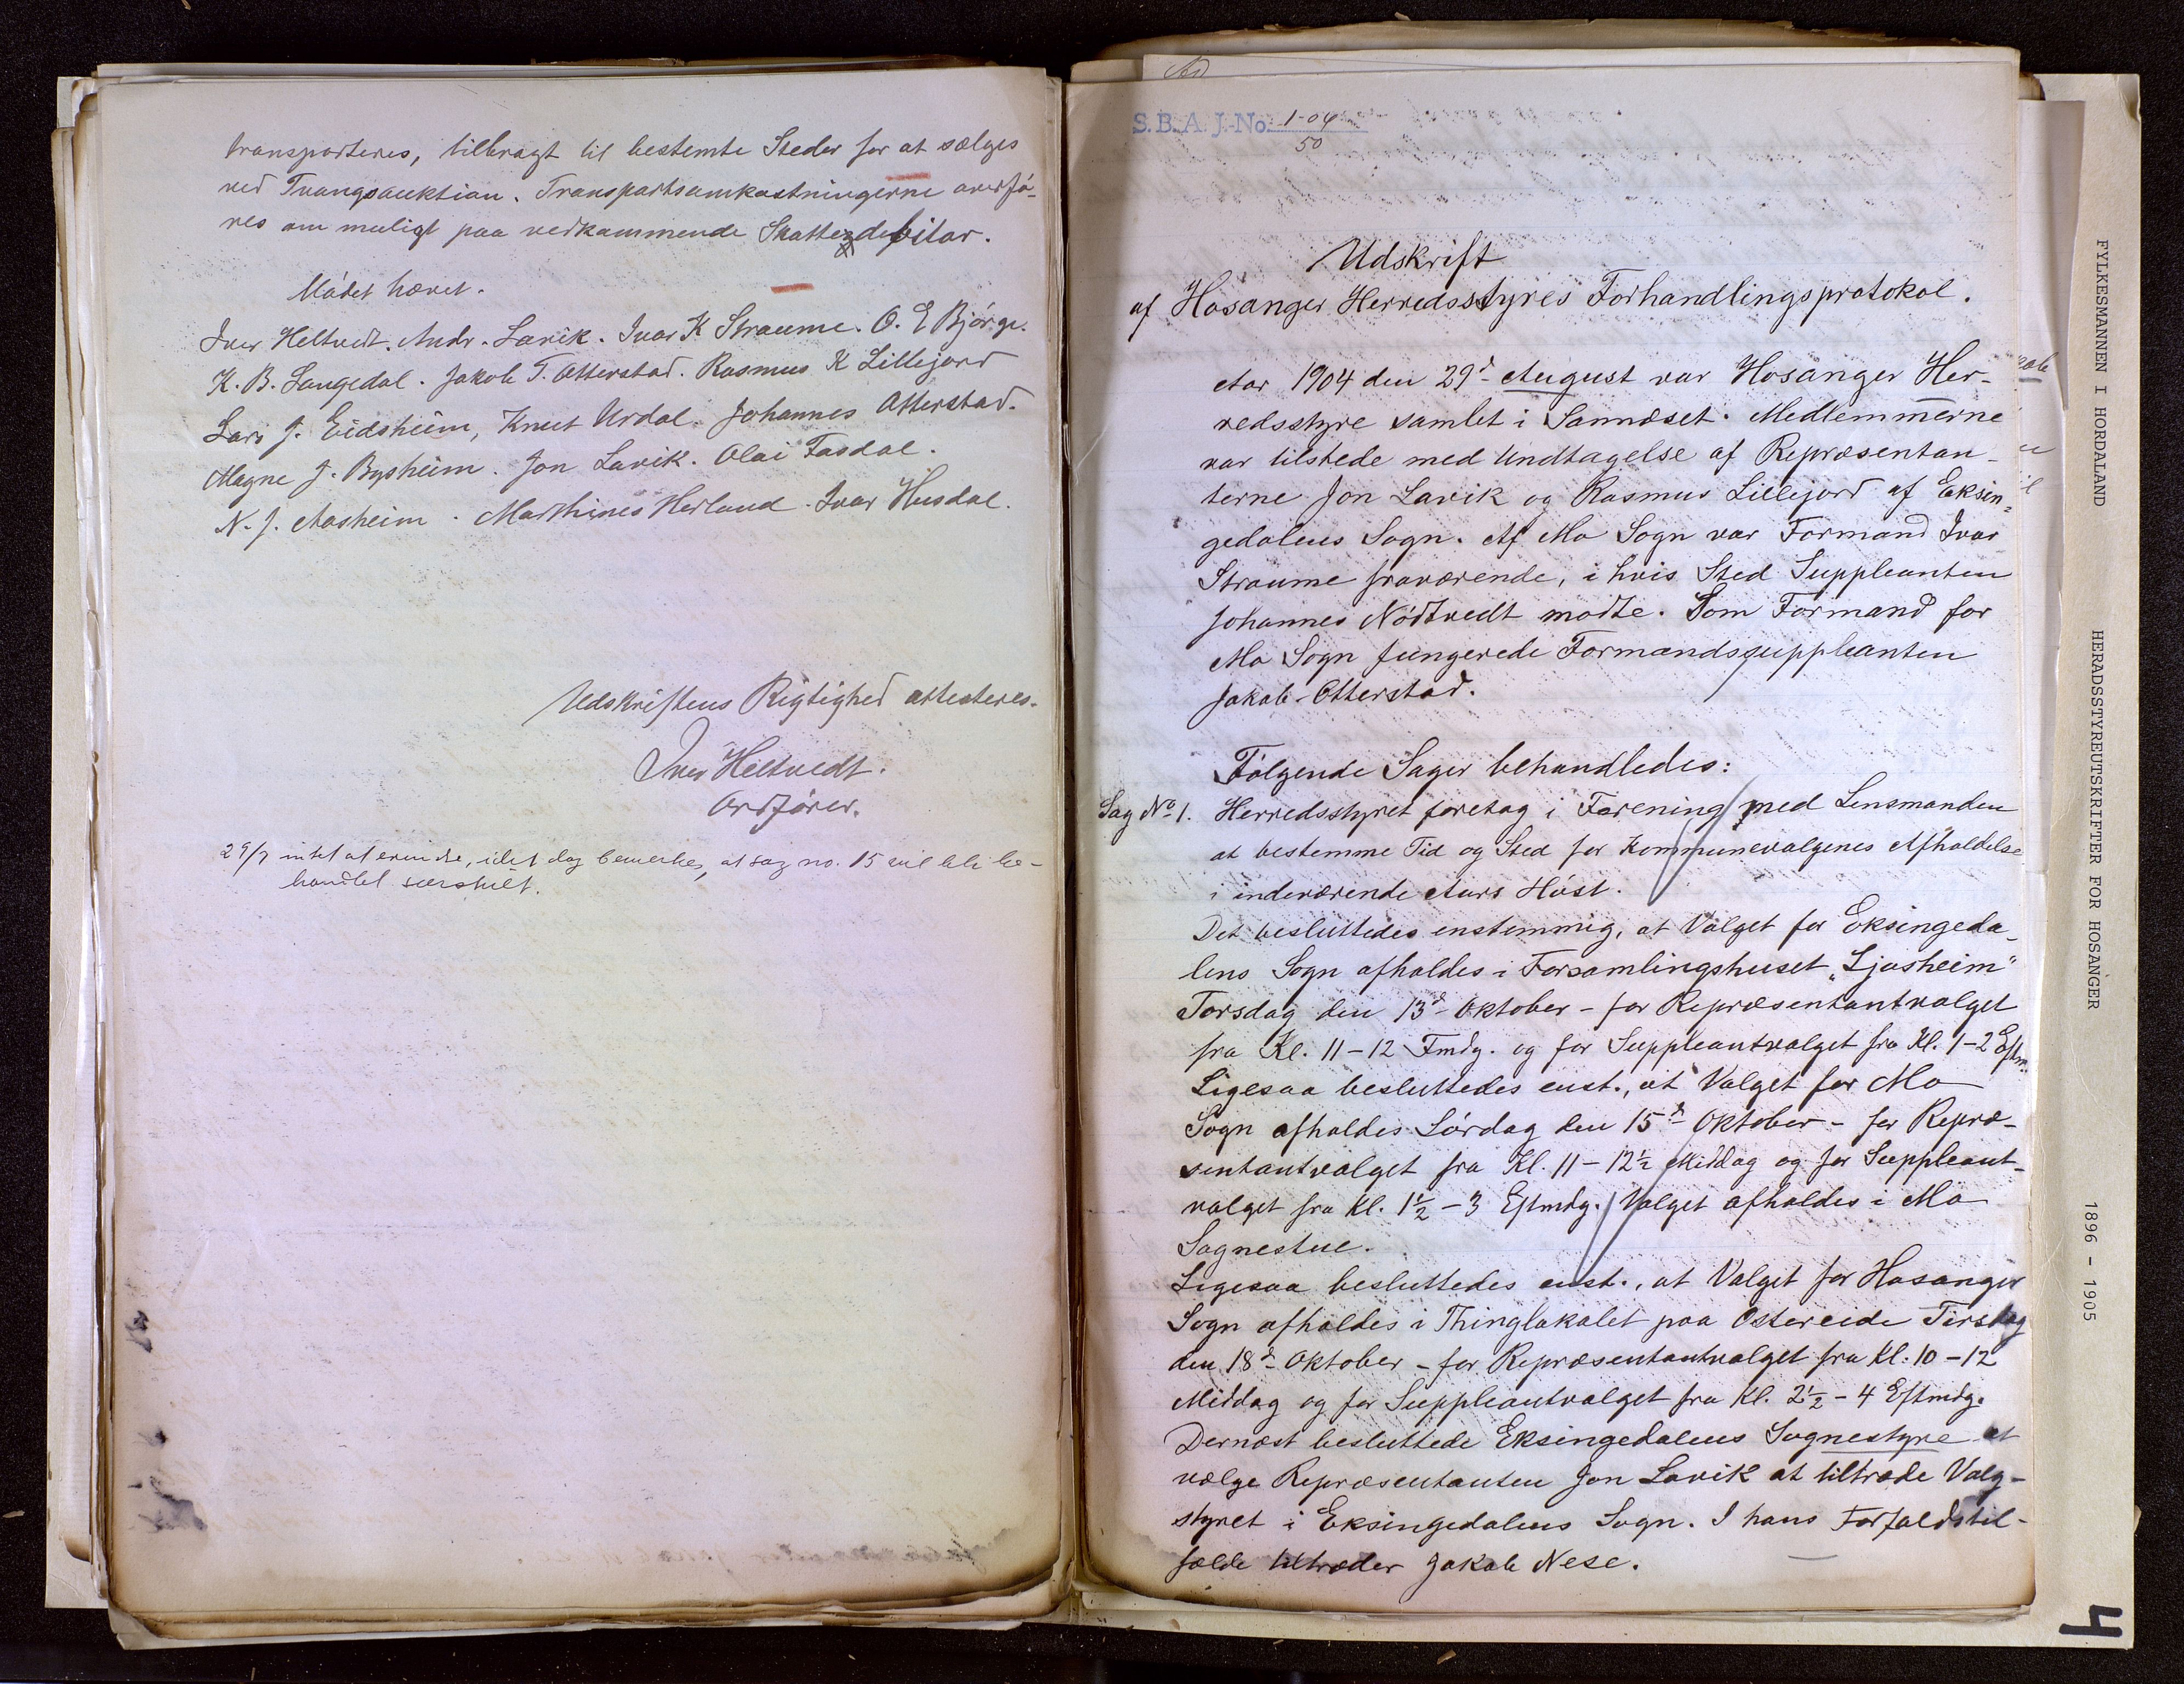 transporteres, tilbragt til bestemte Steder for at sælges
ved Tvangsauktion. Transportsomkostningerne overfø-
res om muligt paa vedkommende Skattedebitor.
Mødet hævet.
Iver Heltvedt. Andr. Lavik. Ivar K Straume. O. E Bjørge.
K. B. Langedal. Jakob T. Otterstad. Rasmus K Lillejord
Lars J. Eidsheim, Knut Urdal. Johannes Otterstad.
Magne J. Bysheim. Jon Lavik. Olai Fasdal.
N. J. Aasheim. Marthines Herland. Ivar Husdal.
Udskriftens Rigtighed attesteres.
Iver Heltvedt.
Ordfører.
29/7 intet at erindre, idet dog bemerkes, at sag no. 15 vil bli be-
handlet særskilt.
S. B. A. J.-No. 1-04
50
Udskrift
af Hosanger Herredsstyres Forhandlingsprotokol.
Aar 1904 den 29d August var Hosanger Her-
redsstyre samlet i Sannæset. Medlemmerne
var tilstede med Undtagelse af Repræsentan-
terne Jon Lavik og Rasmus Lillejord af Eksin-
gedalens Sogn. Af Mo Sogn var Formand Ivar
Straume fraværende, i hvis Sted Suppleanten
Johannes Nødtvedt mødte. Som Formand for
Mo Sogn fungerede Formandssuppleanten
Jakob Otterstad.
Følgende Sager behandledes:
Sag No 1. Herredsstyret foretog i Forening med Lensmanden
at bestemme Tid og Sted for Kommunevalgenes Afholdelse
i indeværende Aars Høst.
Det besluttedes enstemmig, at Valget for Eksingeda-
lens Sogn afholdes i Forsamlingshuset „Ljosheim"
Torsdag den 13d Oktober - for Repræsentantvalget
fra Kl. 11-12 Fmdg. og for Suppleantvalget fra Kl. 1-2 Eftm.
Ligesaa besluttedes enst., at Valget for Mo
Sogn afholdes Lørdag den 15d Oktober - for Repræ-
sentantvalget fra Kl. 11-12½ Middag og for Suppleant-
valget fra Kl. 1½-3 Eftmdg. Valget afholdes i Mo
Sognestue.
Ligesaa besluttedes enst., at Valget for Hosanger
Sogn afholdes i Thinglokalet paa Ostereide Tirsdag
den 18d Oktober - for Repræsentantvalget fra Kl. 10-12
Middag og for Suppleantvalget fra Kl. 2½-4 Eftmdg.
Dernæst besluttede Eksingedalens Sognestyre at
vælge Repræsentanten Jon Lavik at tiltræde Valg-
styret i Eksingedalens Sogn. I hans Forfaldstil-
fælde tiltræder Jakob Nese.
FYLKESMANNEN I HORDALAND HERADSSTYREUTSKRIFTER FOR HOSANGER 1896 - 1905
4